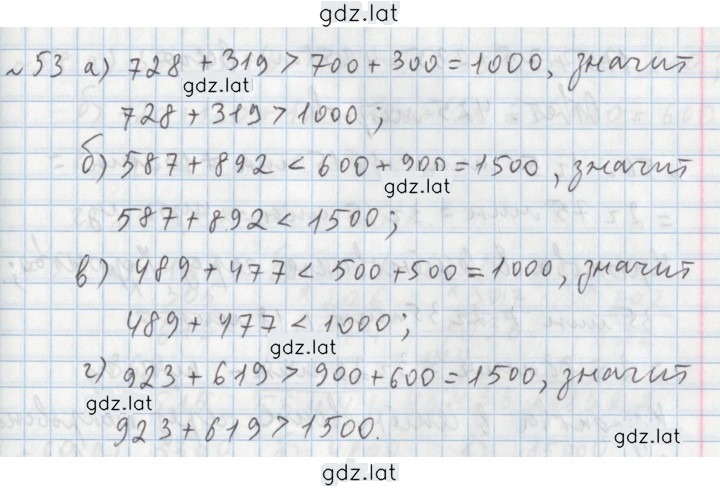 gdz.lat
№53 а) 728 + 319 > 700 + 300 = 1000, значит
gdz.lat
728 + 319 > 1000;
б) 587 + 892 < 600 + 900 = 1500, значит
gdz.lat
587 + 892 < 1500;
в) 489 + 477 < 500 + 500 = 1000, значит
489 + 477 < 1000;
gdz.lat
г) 923 + 619 > 900 + 600 = 1500, значит
gdz.lat
923 + 619 > 1500.
gdz.lat
gdz.lat